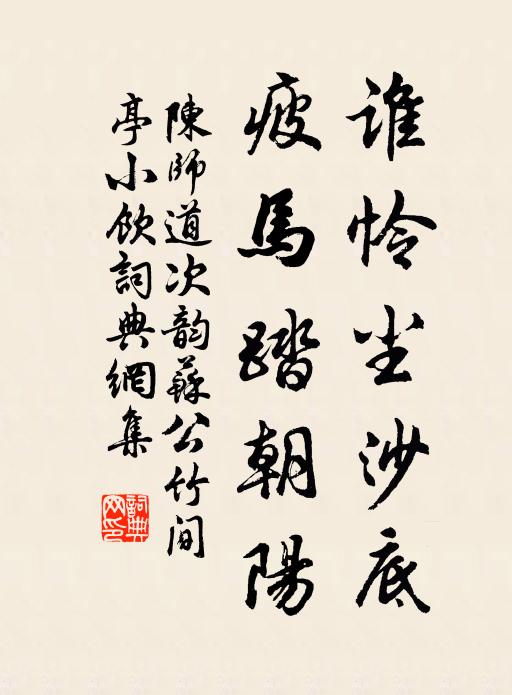 谁怜尘沙底
疲馬踏朝陽
陳師道次韵蘇公竹间
亭小飲詞典網集
詞典网印